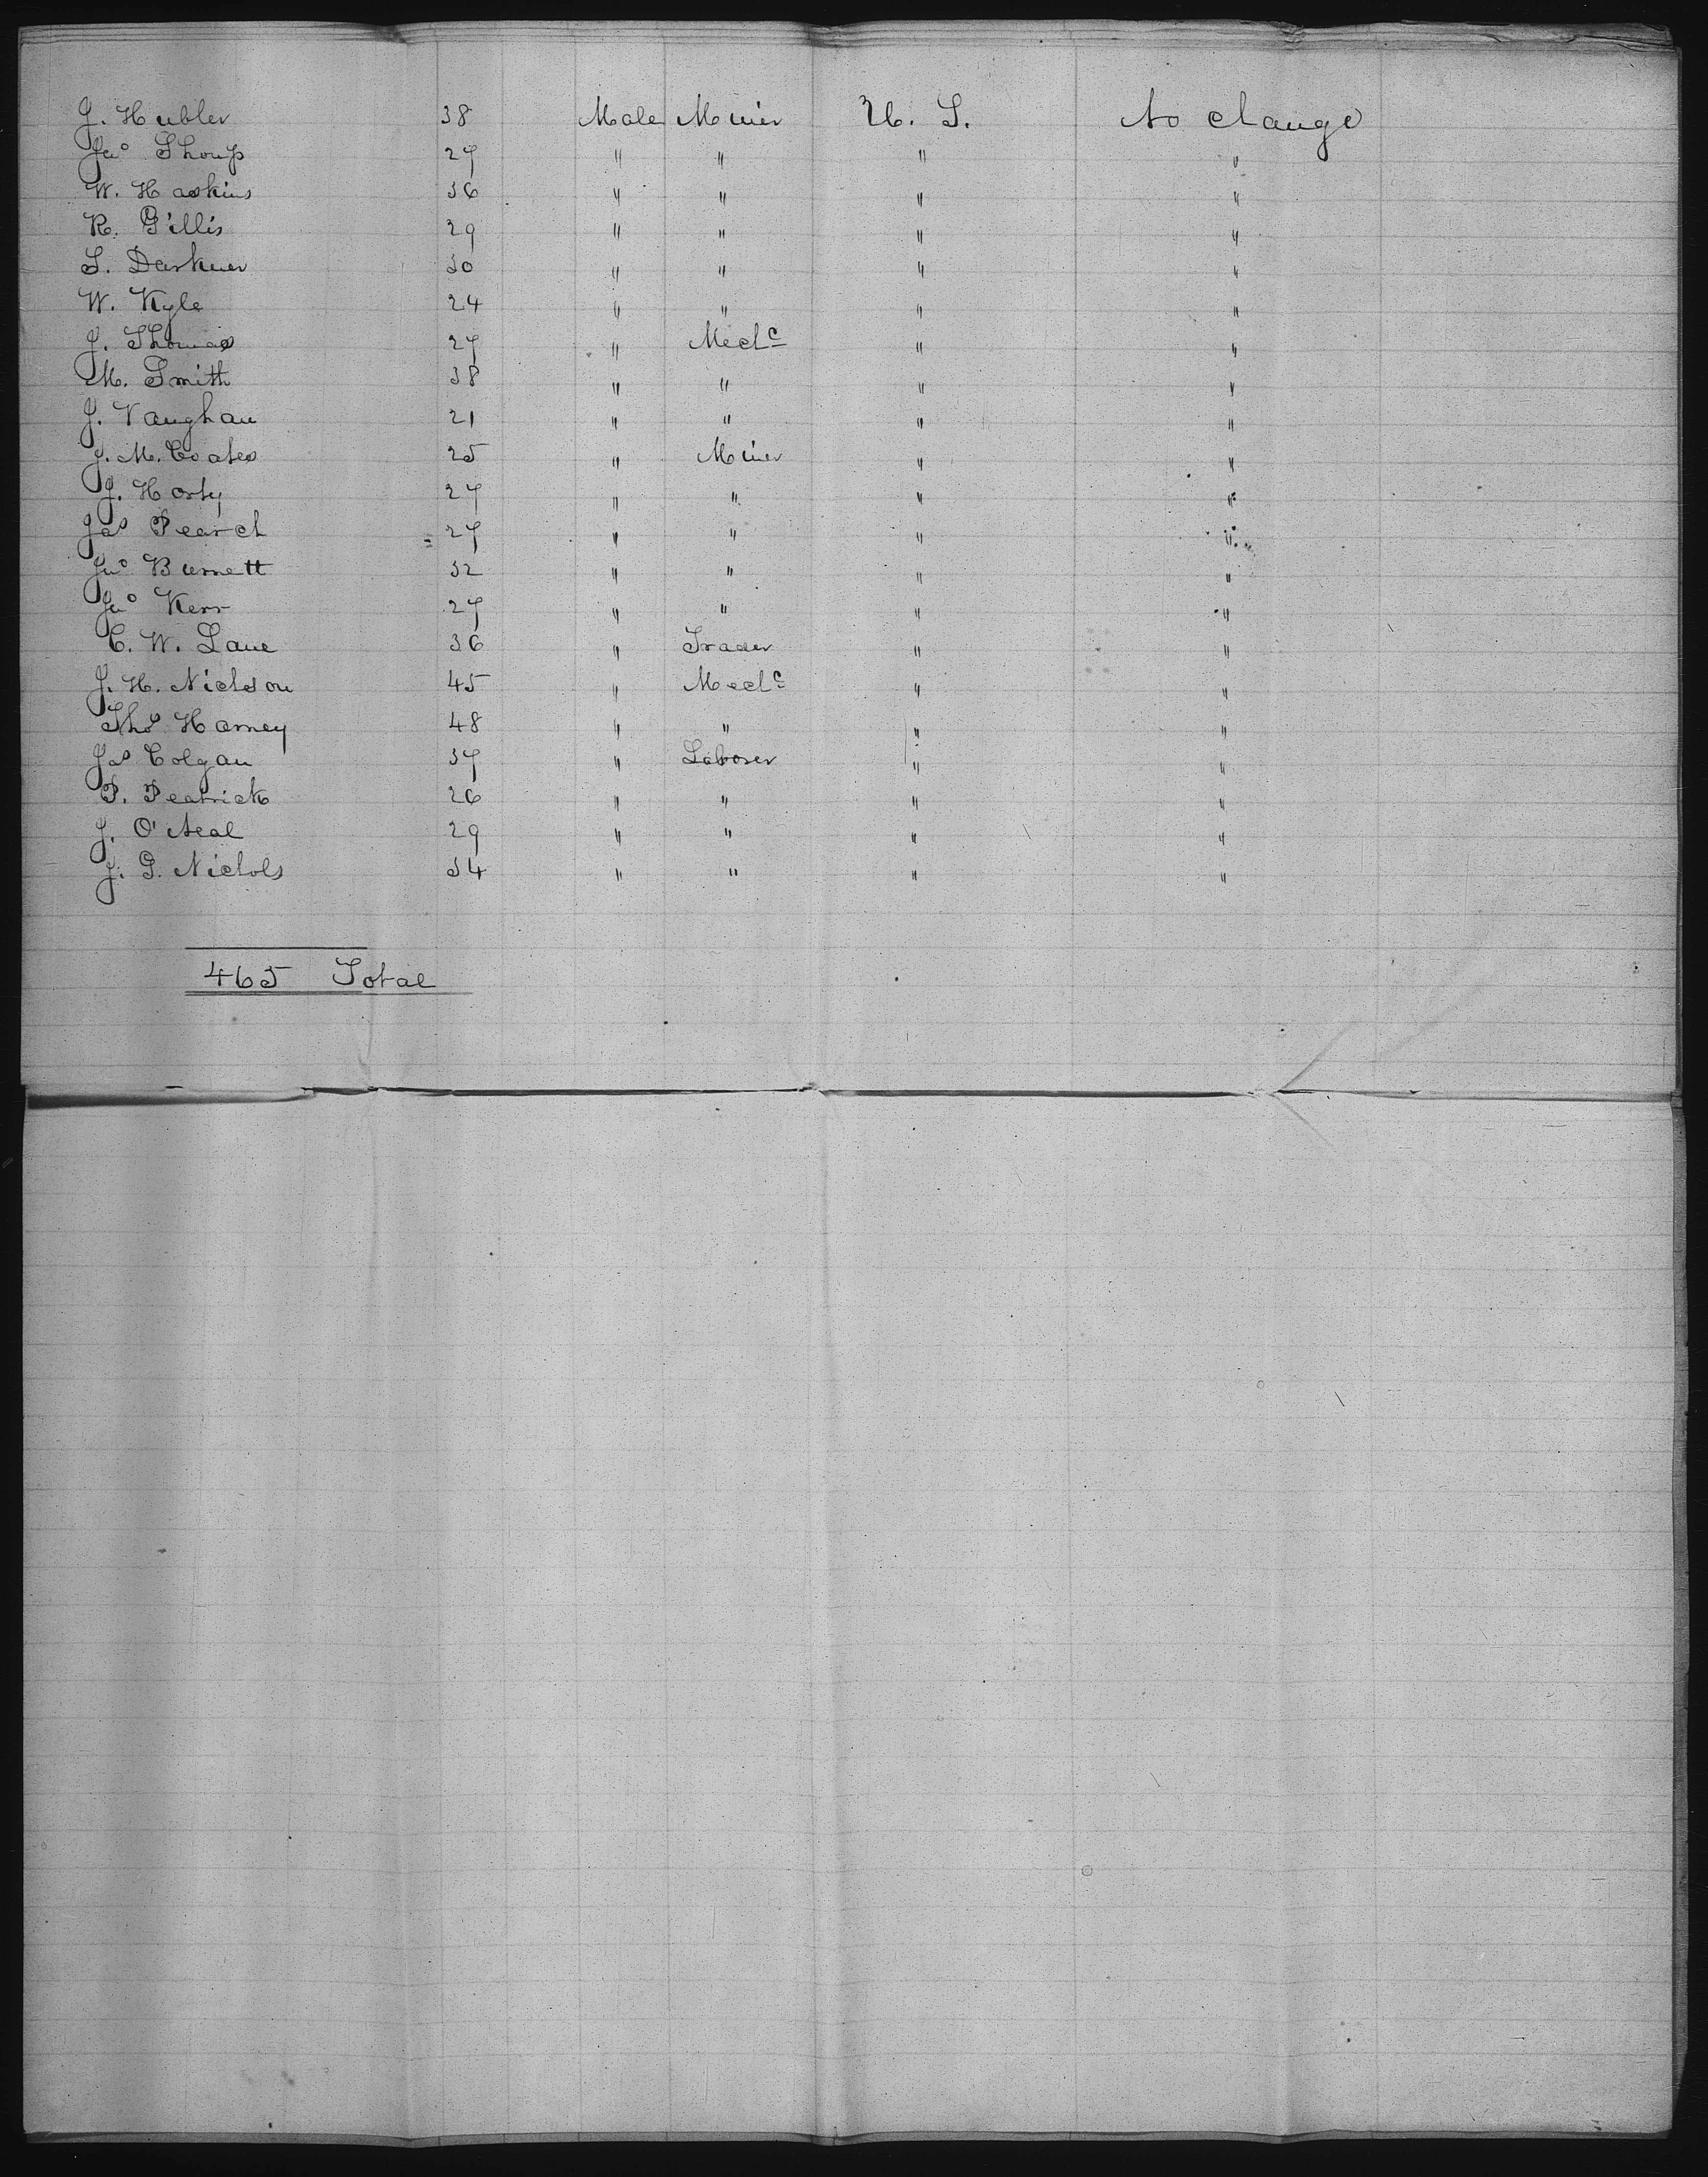 J. Hubler 38 Male Miner U. S. No change
Jno Shoup 27 " " " "
W. Haskins 36 " " " "
R. Gillis 29 " " " "
S. Darkner 30 " " " "
W. Kyle 24 " " " "
J. Thomas 27 " Mechc " "
M. Smith 38 " " " "
J. Vaughan 21 " " " "
J. M. Coates 25 " Miner " "
J. Horty 27 " " " "
Jas Pearch 27 " " " "
Jno Burnett 32 " " " "
Jno Kerr 27 " " " "
C. W. Lane 36 " Trader " "
J. H. Nichson 45 " Mechc " "
Thos Harney 48 " " " "
Jas Colgan 37 " Laborer " "
P. Peatrick 26 " " " "
J. O'Neal 29 " " " "
J. G. Nichols 34 " " " "
465 Total